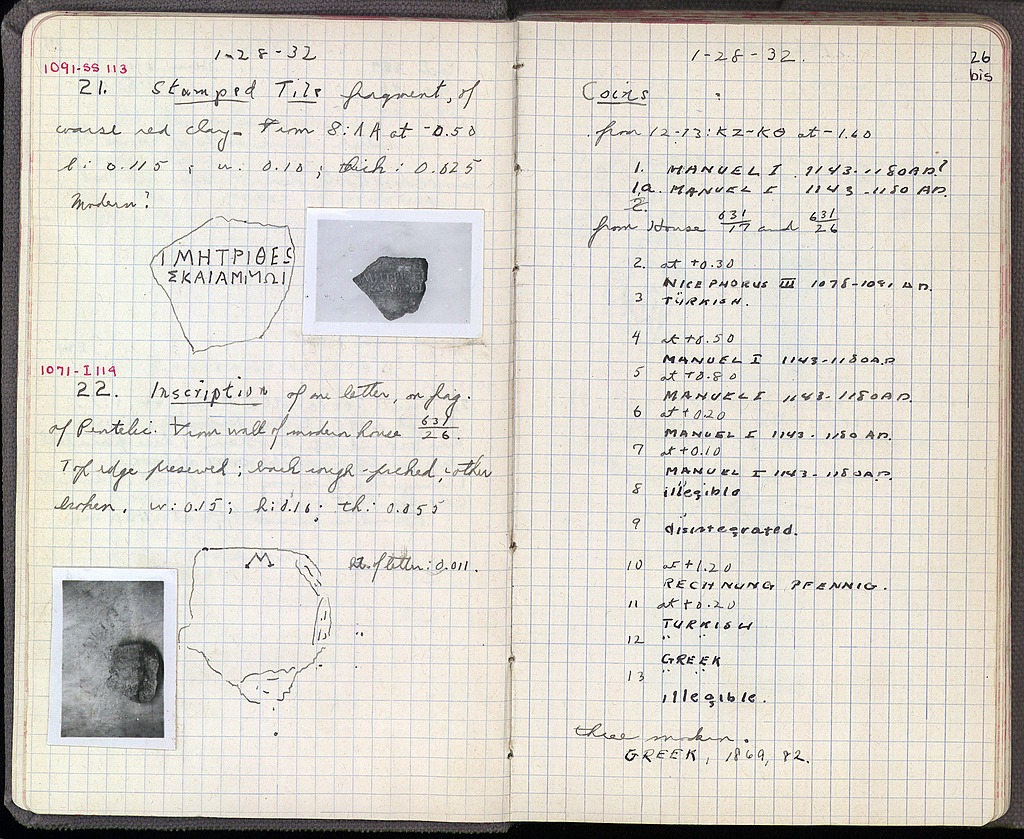 1-28-32
1091-SS 113
21. Stamped Tile fragment, of
coarse red clay - From 8:ΛA at -0.50
l: 0.115 ; w: 0.10 ; thick: 0.025
Modern?
ΙΜΗΤΡΙΘΕΣ
ΣΚΑΙΑΜΜΩΙ
1071-I 119
22. Inscription of one letter, on frag.
of Pentelic. From wall of modern house 631/26.
Top edge preserved; back rough-picked, other
broken. w: 0.15; h: 0.16; th: 0.055
M
ht. of letter: 0.011.
1-28-32.
26
bis
Coins
from 12-13:ΚΖ-ΚΘ at -1.60
1. MANUEL I 1143-1180 A.D.?
1a. MANUEL I 1143-1180 A.D.
2.
from House 631/17 and 631/26
2. at +0.30
NICEPHORUS III 1078-1081 A.D.
3 TURKISH.
4 at +0.50
MANUEL I 1143-1180 A.D
5 at +0.80
MANUEL I 1143-1180 A.D.
6 at +0.20
MANUEL I 1143-1180 A.D.
7 at +0.10
MANUEL I 1143-1180 A.D.
8 illegible
9 disintegrated.
10 at +1.20
RECHNUNG PFENNIG.
11 at +0.20
TURKISH
12 " "
GREEK
13 " "
illegible.
three modern.
GREEK, 1869, 82.